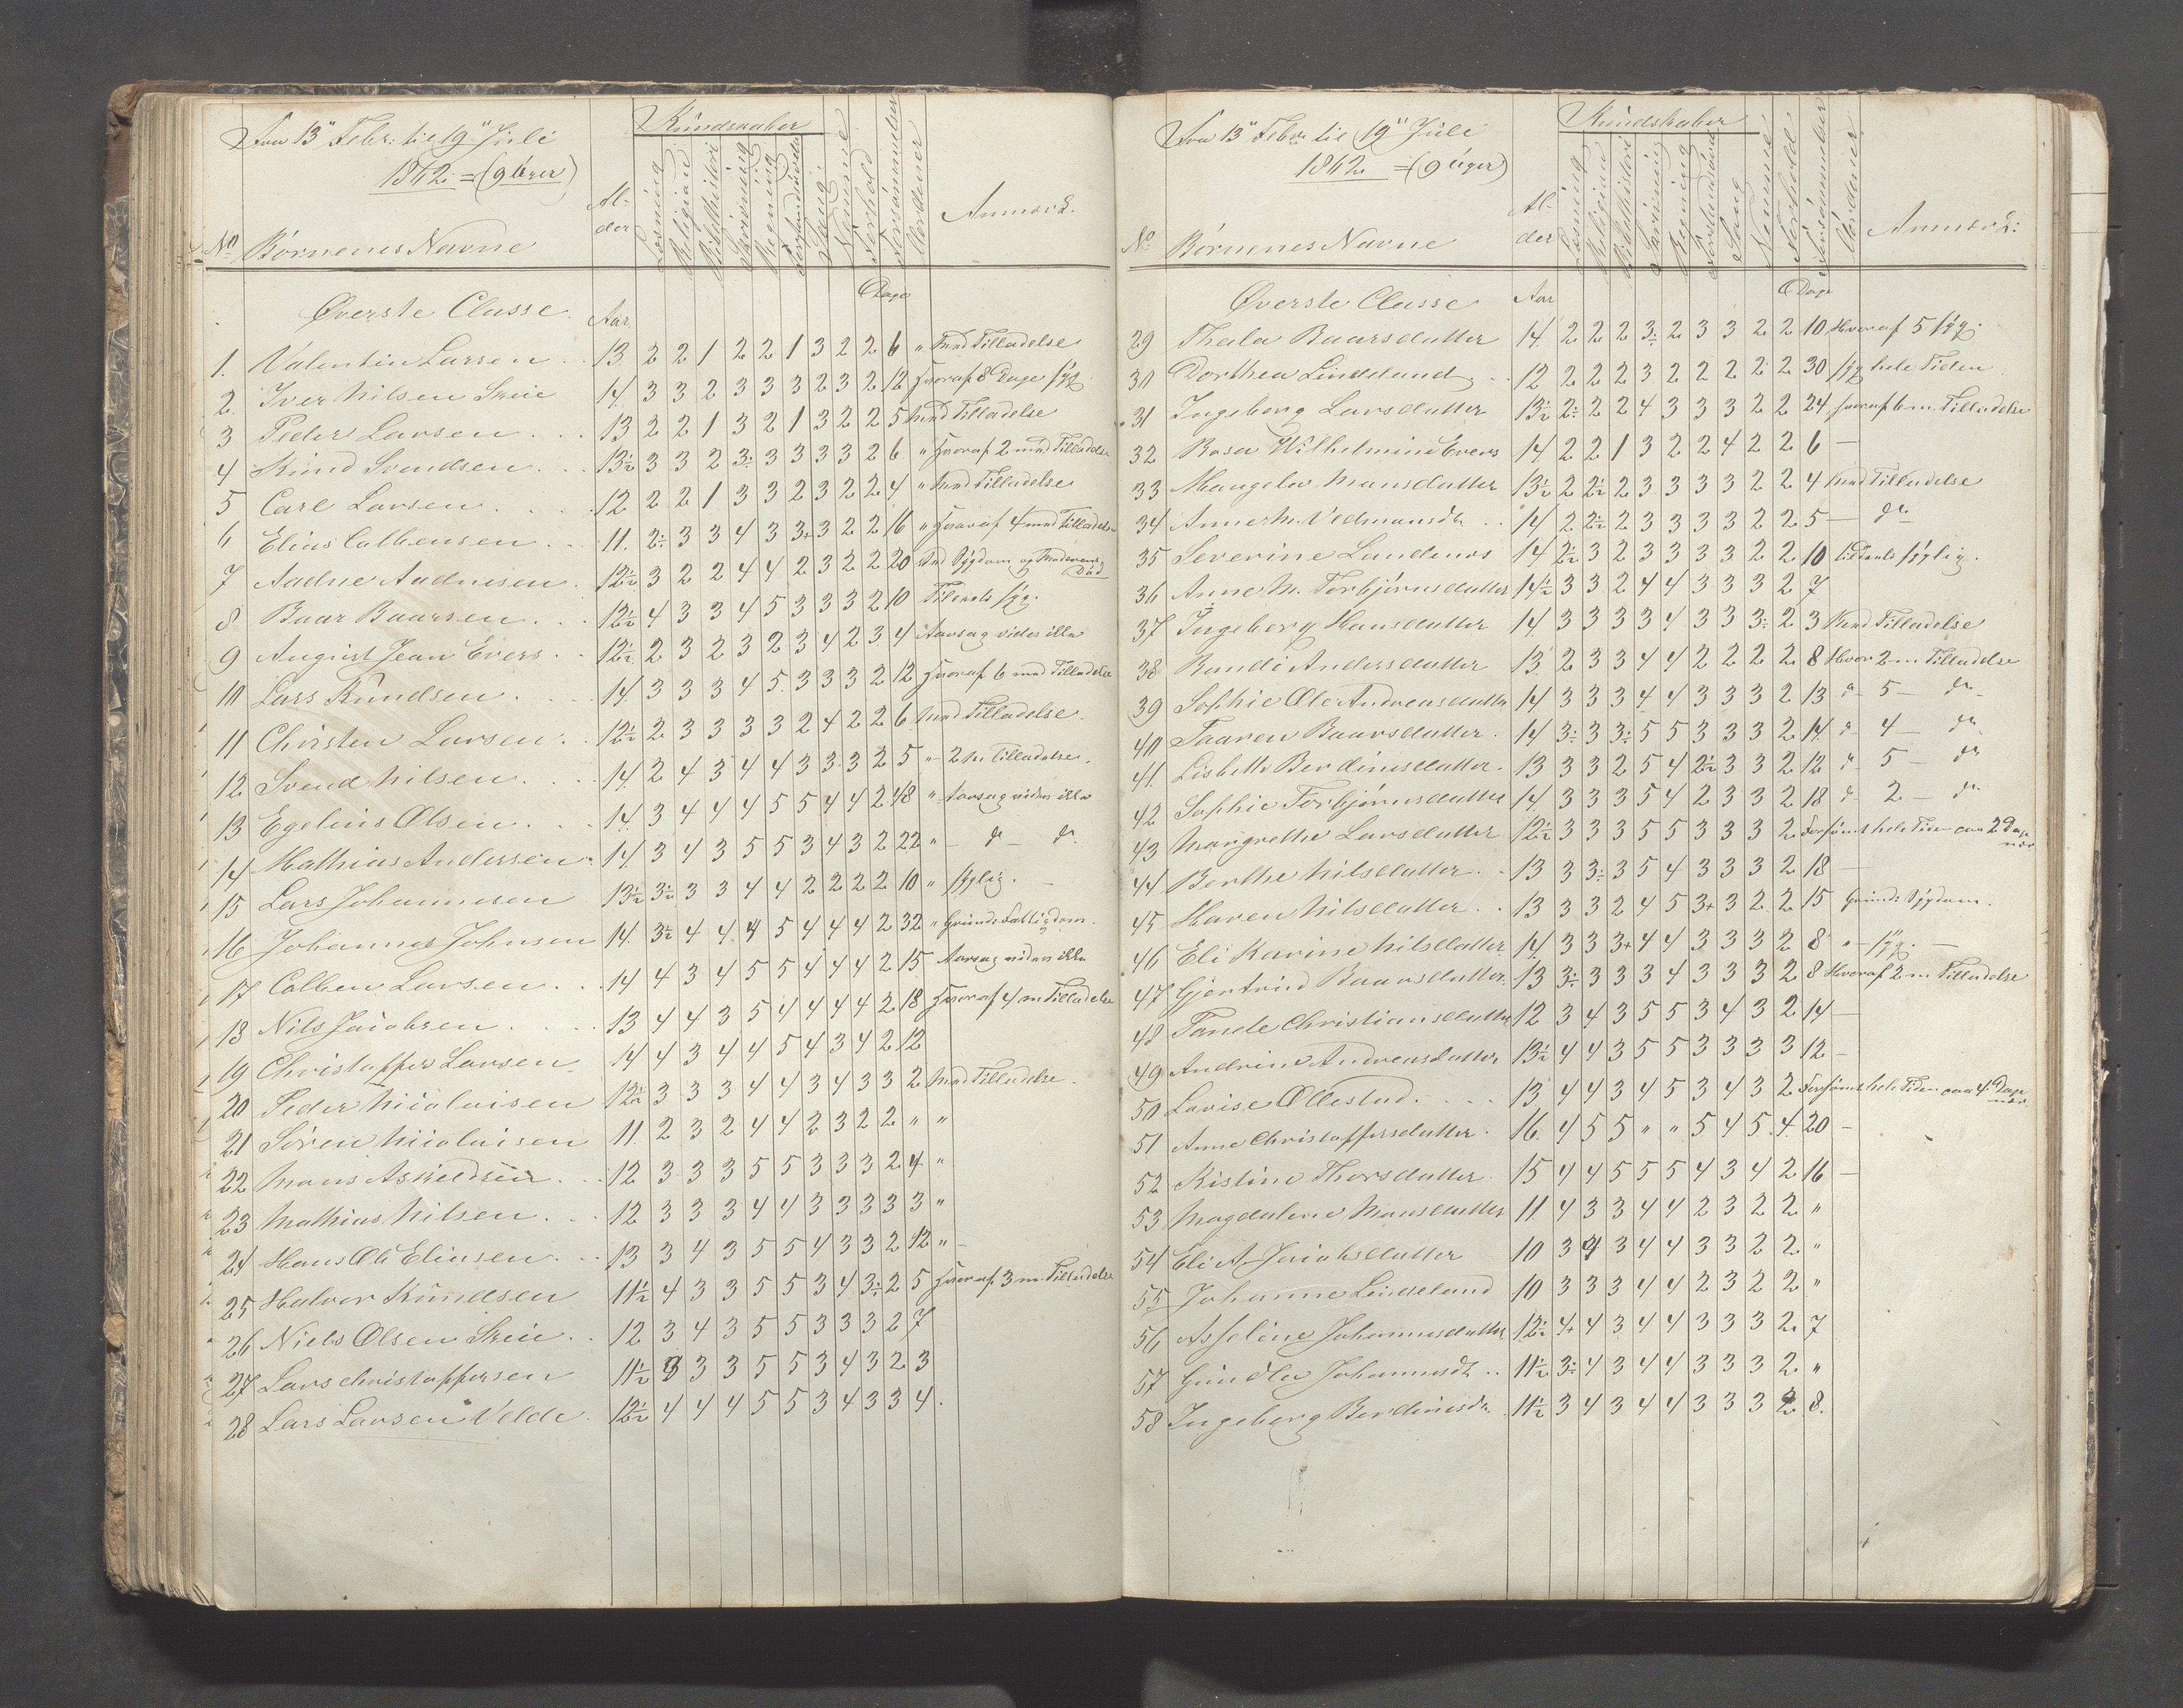 Fra 13" Febr: til 19" Juli
1862 = (9 Uger)
Kundskaber
No Børnenes Navne Al- der Læsning Religion Bibelhistori Skrivning Regning Forstandsøvelse Sang Nemme Forhold Forsømmelser Verdener Anmærk.
Øverste Classe. Aar. Dage
1. Valentin Larsen . 13 2 2 1 2 2 1 3 2 2 6 " Med Tilladelse
2. Iver Nilsen Skeie 14 3 3 2 3 3 3 2 3 2 12 hvoraf 8 Dage syg.
3 Peder Larsen . . . 13 2 2 1 3 2 1 3 2 2 5 Med Tilladelse
4 Knud Svendsen . . 13½ 3 3 2 3÷ 3 3 3 3 2 6 " hvoraf 2 med Tilladelse
5 Carl Larsen . . . 12 2 2 1 3 3 2 3 2 2 4 " Med Tilladelse
6 Elias Colbensen . . 11. 2÷ 3 3 4 3 3+ 3 2 2 16 " hvoraf 4 med Tilladelse
7 Aadne Aadnesen . 12½ 3 2 2 4 4 2 3 2 2 20 Ved Sygdom og Moderens Død
8 Baar Baarsen . . . 12½ 4 3 3 4 5 3 3 3 2 10 Tildeels syg.
9 August Jean Evers . . 12½ 2 3 2 3 2 3 4 2 3 4 Aarsag vides ikke
10 Lars Knudsen . . . 14. 3 3 3 4 5 3 3 3 2 12 hvoraf 6 med Tilladelse
11 Christen Larsen . . 12½ 2 3 3 3 3 2 4 2 2 6 Med Tilladelse.
12 Svend Nilsen . . . 14. 2 4 3 4 4 3 3 3 2 5 " 2 m. Tilladelse.
13 Egelius Olsen . . . 14. 3 4 4 4 5 5 4 4 2 48 " Aarsag vides ikke
14 Mathias Andersen . 14. 3 4 3 5 5 3 4 3 2 22 " do do
15 Lars Johannesen 13½ 3½ 3 3 4 4 2 2 2 2 10 " sygelig.
16 Johannes Johnsen 14. 3½ 4 4 4 5 4 4 4 2 32 " Grunds Fattigdom.
17 Colben Larsen . . . 14 4 3 4 5 5 4 4 4 2 15 Aarsag vides ikke
18 Nils Jacobsen . . . 13 4 4 3 5 4 4 4 4 2 18 hvoraf 4 m Tilladelse
19 Christopher Larsen 14 4 3 4 4 5 4 3 4 2 12
20 Peder Nicolaisen 12½ 3 3 3 4 4 3 4 3 3 2 Med Tilladelse.
21 Søren Nicolaisen 11. 2 3 2 4 4 2 3 2 2 " "
22 Mons Askildsen . . 12 3 3 3 5 5 3 3 3 2 4 "
23 Mathias Nilsen . . 12 3 3 3 4 4 3 3 3 3 3 "
24 Hans Ole Eliasen . . 13 3 4 3 5 5 4 3 3 2 12 "
25 Halvor Knudsen 11½ 4 3 3 5 5 3 4 3÷ 2 5 hvoraf 3 m. Tilladelse
26 Niels Olsen Skeie . . 12 3 4 3 5 5 3 3 3 2 7
27 Lars Christophersen 11½ 3 3 3 5 5 3 4 3 2 3
28 Lars Larsen Velde . 12½ 4 4 4 5 5 3 4 3 3 4.
Fra 13" Febr til 19" Juli
1862 = (9 Uger)
Kundskaber
No. Børnenes Navne Al- der Læsning Religion Bibelhistori Skrivning Regning Forstandsøvelse Sang Nemme Forhold Forsømmelser Verdener Anmærk:
Øverste Classe Aar Dage
29 Thala Baarsdatter 14. 2 2 2 3÷ 2 3 3 2 2 10 Hvoraf 5 syg.
30 Dorthea Lindeland . . 12 2 2 2 3 2 2 2 2 2 30 syg hele Tiden
31 Ingeborg Larsdatter 13½ 2÷ 2 2 4 3 3 3 2 2 24 hvoraf 6 m. Tilladelse
32 Rasa Wilhelmine Evers 14 2 2 1 3 2 2 4 2 2 6 —
33 Mangela Monsdatter 13½ 2 2½ 2 3 3 3 3 2 2 4 Med Tilladelse
34 Anne M. Vedmansdtr . . 14 2 2½ 2 3 3 3 3 2 2 5 — do
35 Severine Landmos 14 2½ 3 2 3 3 3 3 2 2 10 tildeels sygelig.
36 Anne M. Torbjørnsdatter 14½ 3 3 2 4 4 3 3 3 2 7
37 Ingeborg Hansdatter 14. 3 3 3 3 4 3 3 3÷ 2 3 Med Tilladelse
38 Randi Andersdatter 13. 2 3 3 4 4 2 2 2 2 8 Hvor 2 m Tilladelse
39 Sophie Ole Andreasdatter 14 3 3 3 4 4 3 3 3 2 13 do 5 — do —
40 Taaren Baarsdatter . 14 3÷ 3 3÷ 5 5 3 3 3 2 14. do 4 — do
41. Lisbeth Berdinesdatter . 13 3 3 2 5 4 2½ 3 3 2 12 do 5 — do
42 Sophie Torbjørnsdatter 14. 3 3 3 5 4 2 3 3 2 18 do 2 — do
43 Mangrethe Larsdatter 12½ 3 3 3 5 5 3 3 3 2 Forsømt hele Tiden paa 2 Dage nær
44 Berthe Nilsdatter . . 13 3 3÷ 3 5 4 3 3 3 2 18 —
45 Maren Nilsdatter . . 13 3 3 2 4 5 3+ 3 2 2 15 Grunds Sygdom.
46 Eli Karine Nilsdatter 14. 3 3 3+ 4 4 3 3 3 2 8 " — syg. —
47 Gjertrud Baarsdatter . 13 3÷ 3 3 3 4 3 3 3 2 8 Hvoraf 2 m. Tilladelse
48 Tande Christiansdatter 12 3 4 3 5 5 3 4 3 2 14 —
49 Andrine Andreasdatter 13½ 4 4 3 5 5 3 3 3 3 12 —
50 Lovise Ollestad . . . . 13 4 4 3 4 5 3 4 3 2 Forsømt hele Tiden paa 4 Dage nær.
51 Anne Christophersdatter . 16. 4 5 5 " " 5 4 5 4. 20 —
52 Kistine Thorsdatter . 15 4 4 5 5 5 4 3 4 2 16 —
53 Magdalene Monsdatter 11. 4 3 3 4 4 2 3 2 2 "
54 Eli A Jacobsdatter 10 3 4 3 4 4 3 3 2 2 "
55 Johanne Lindeland 10 3 3 3 4 4 2 3 2 2 "
56 Asseline Johannesdatter 12½ 4+ 4 3 4 4 3 3 3 2. 7
57 Gundla Johannesdt . . 11½ 3÷ 4 3 4 4 3 3 3 2 "
58 Ingeborg Berdinesdr. 11½ 3 4 3 4 4 3 3 3 2 8.